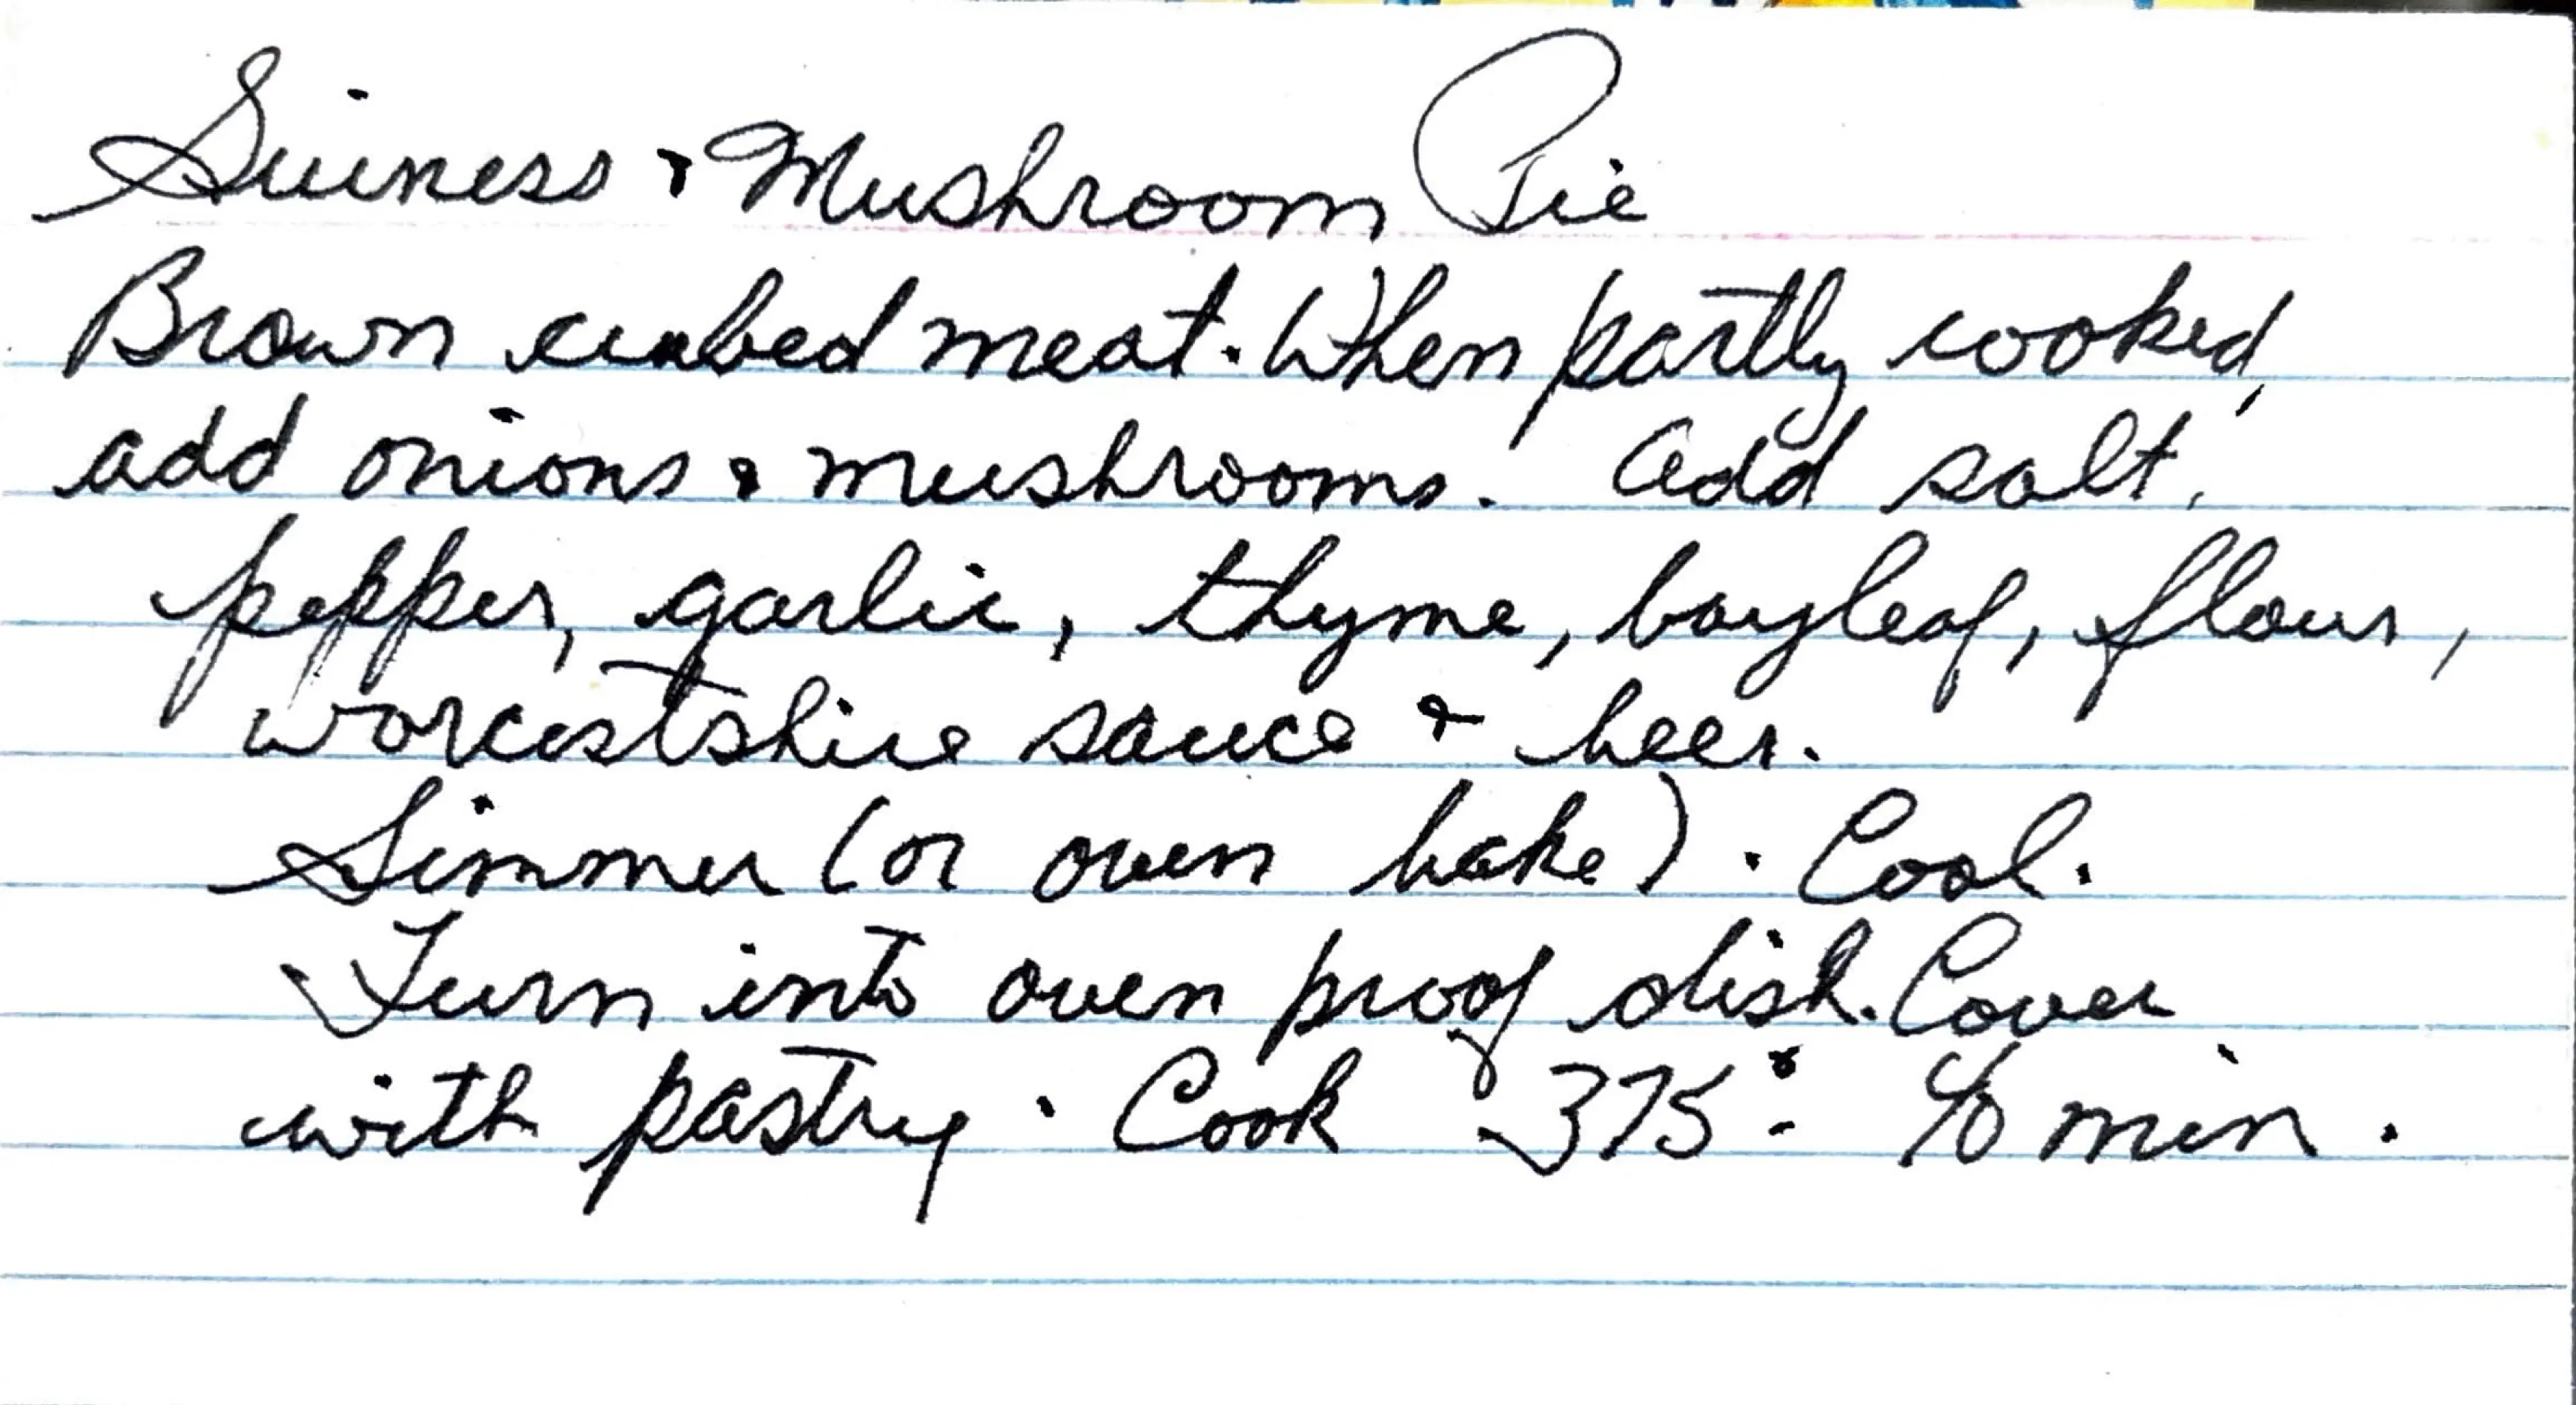 Guiness & Mushroom Pie
Brown cubed meat. When partly cooked,
add onions & mushrooms. Add salt,
pepper, garlic, thyme, bayleaf, flour,
worcestshire sauce & beer.
Simmer (or oven bake). Cool.
Turn into oven proof dish. Cover
with pastry. Cook 375° - 40 min.